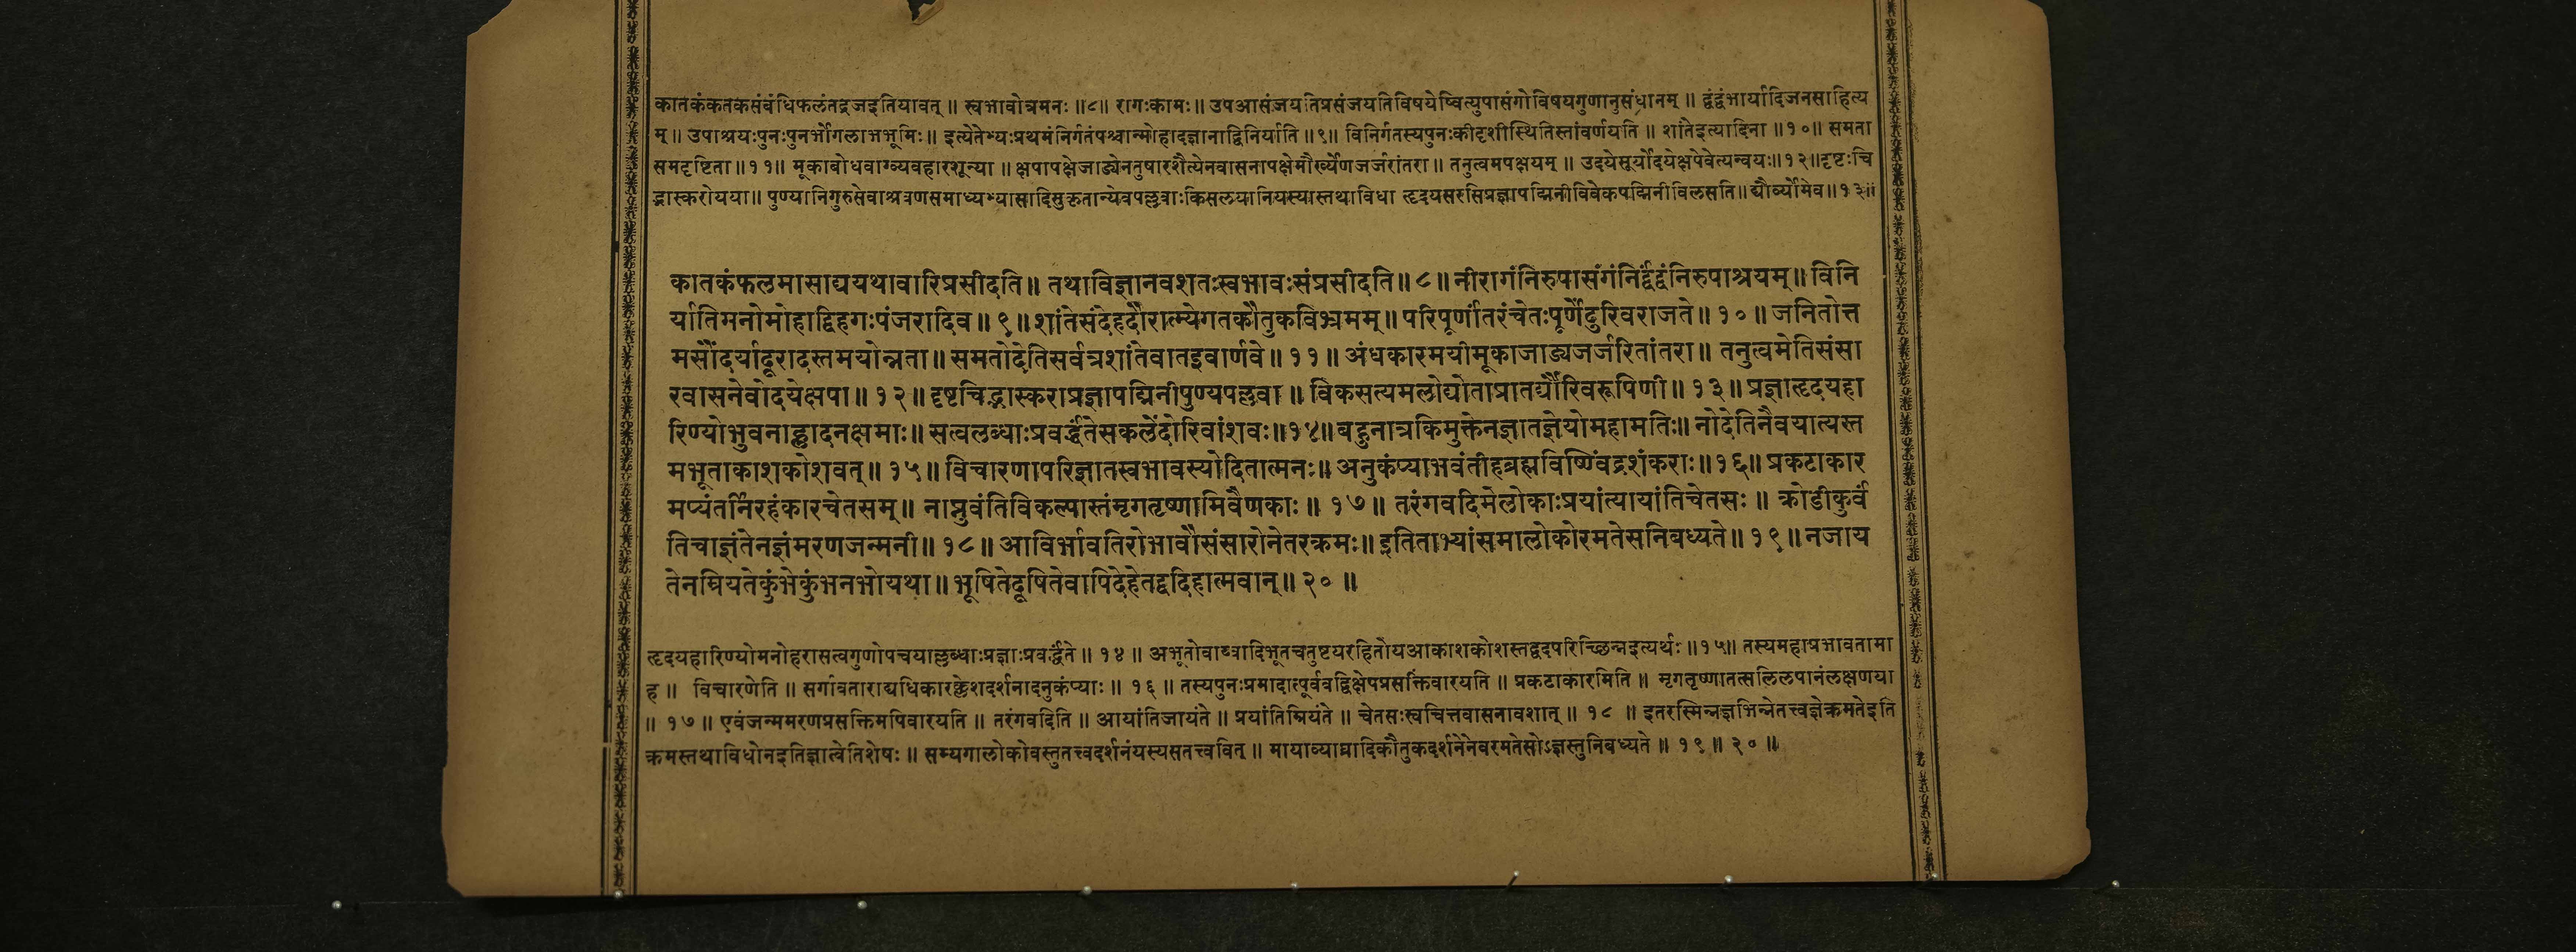 कातकंकतकसंबंधिफलंतद्रजइतियावत् ॥ स्वभावोत्रमनः ॥८॥ रागःकामः ॥ उपआसंजयतिप्रसंजयतिविषयेष्वित्युपासंगोविषयगुणानुसंधानम् ॥ द्वंद्वंभार्यादिजनसाहित्य
म् ॥ उपाश्रयःपुनःपुनर्भोगलाभभूमिः ॥ इत्येतेभ्यःप्रथमंनिर्गतंपश्चान्मोहादज्ञानाद्विनिर्याति ॥९॥ विनिर्गतस्यपुनःकीदृशीस्थितिस्तांवर्णयति ॥ शांतेइत्यादिना ॥१०॥ समता
समदृष्टिता ॥११॥ मूकाबोधवाग्व्यवहारशून्या ॥ क्षपापक्षेजाड्येनतुषारशैत्येनवासनापक्षेमौर्ख्येणजर्जरांतरा ॥ तनुत्वमपक्षयम् ॥ उदयेसूर्योदयेक्षपेवेत्यन्वयः॥१२॥दृष्टःचि
द्भास्करोयया॥ पुण्यानिगुरुसेवाश्रवणसमाध्यभ्यासादिसुकृतान्येवपल्लवाःकिसलयानियस्यास्तथाविधा हृदयसरसिप्रज्ञापद्मिनीविवेकपद्मिनीविलसति॥द्यौर्व्योमेव॥१३॥
कातकंफलमासाद्ययथावारिप्रसीदति॥ तथाविज्ञानवशतःस्वभावःसंप्रसीदति॥८॥नीरागंनिरुपासंगंनिर्द्वंद्वंनिरुपाश्रयम्॥ विनि
र्यातिमनोमोहाद्विहगःपंजरादिव॥९॥शांतेसंदेहदौरात्म्येगतकौतुकविभ्रमम्॥ परिपूर्णांतरंचेतःपूर्णेंदुरिवराजते॥१०॥जनितोत्त
मसौंदर्यादूरादस्तमयोन्नता॥ समतोदेतिसर्वत्रशांतेवातइवार्णवे॥११॥ अंधकारमयीमूकाजाड्यजर्जरितांतरा॥ तनुत्वमेतिसंसा
रवासनेवोदयेक्षपा॥१२॥दृष्टचिद्भास्कराप्रज्ञापद्मिनीपुण्यपल्लवा॥ विकसत्यमलोद्योताप्रातर्द्यौरिवरूपिणी॥१३॥प्रज्ञाहृदयहा
रिण्योभुवनाह्लादनक्षमाः॥ सत्वलब्धाःप्रवर्द्धंतेसकलेंदोरिवांशवः॥१४॥बहुनात्रकिमुक्तेनज्ञातज्ञेयोमहामतिः॥ नोदेतिनैवयात्यस्त
मभूताकाशकोशवत्॥१५॥विचारणापरिज्ञातस्वभावस्योदितात्मनः॥ अनुकंप्याभवंतीहब्रह्मविष्ण्विंद्रशंकराः॥१६॥प्रकटाकार
मप्यंतर्निरहंकारचेतसम्॥ नाप्नुवंतिविकल्पास्तंमृगतृष्णामिवैणकाः॥१७॥ तरंगवदिमेलोकाःप्रयांत्यायांतिचेतसः॥ क्रोडीकुर्वं
तिचाज्ञंतेनज्ञंमरणजन्मनी॥१८॥आविर्भावतिरोभावौसंसारोनेतरक्रमः॥इतिताभ्यांसमालोकोरमतेसनिबध्यते॥१९॥नजाय
तेनम्रियतेकुंभेकुंभनभोयथा॥भूषितेदूषितेवापिदेहेतद्वदिहात्मवान्॥२०॥
हृदयहारिण्योमनोहरासत्वगुणोपचयाल्लब्धाःप्रज्ञाःप्रवर्द्धंते ॥१४॥ अभूतोवाय्वादिभूतचतुष्टयरहितोयआकाशकोशस्तद्वदपरिच्छिन्नइत्यर्थः ॥१५॥ तस्यमहाप्रभावतामा
ह ॥ विचारणेति ॥ सर्गावताराद्यधिकारक्लेशदर्शनादनुकंप्याः ॥१६॥ तस्यपुनःप्रमादात्पूर्ववद्विक्षेपप्रसक्तिंवारयति ॥ प्रकटाकारमिति ॥ मृगतृष्णातत्सलिलपानंलक्षणया
॥१७॥ एवंजन्ममरणप्रसक्तिमपिवारयति ॥ तरंगवदिति ॥ आयांतिजायंते ॥ प्रयांतिम्रियंते ॥ चेतसःस्वचित्तवासनावशात् ॥१८॥ इतरस्मिन्नज्ञभिन्नेतत्त्वज्ञेक्रमतेइति
क्रमस्तथाविधोनइतिज्ञात्वेतिशेषः ॥ सम्यगालोकोवस्तुतत्त्वदर्शनंयस्यसतत्त्ववित् ॥ मायाव्याघ्रादिकौतुकदर्शनेनेवरमतेसोऽज्ञस्तुनिबध्यते ॥१९॥२०॥